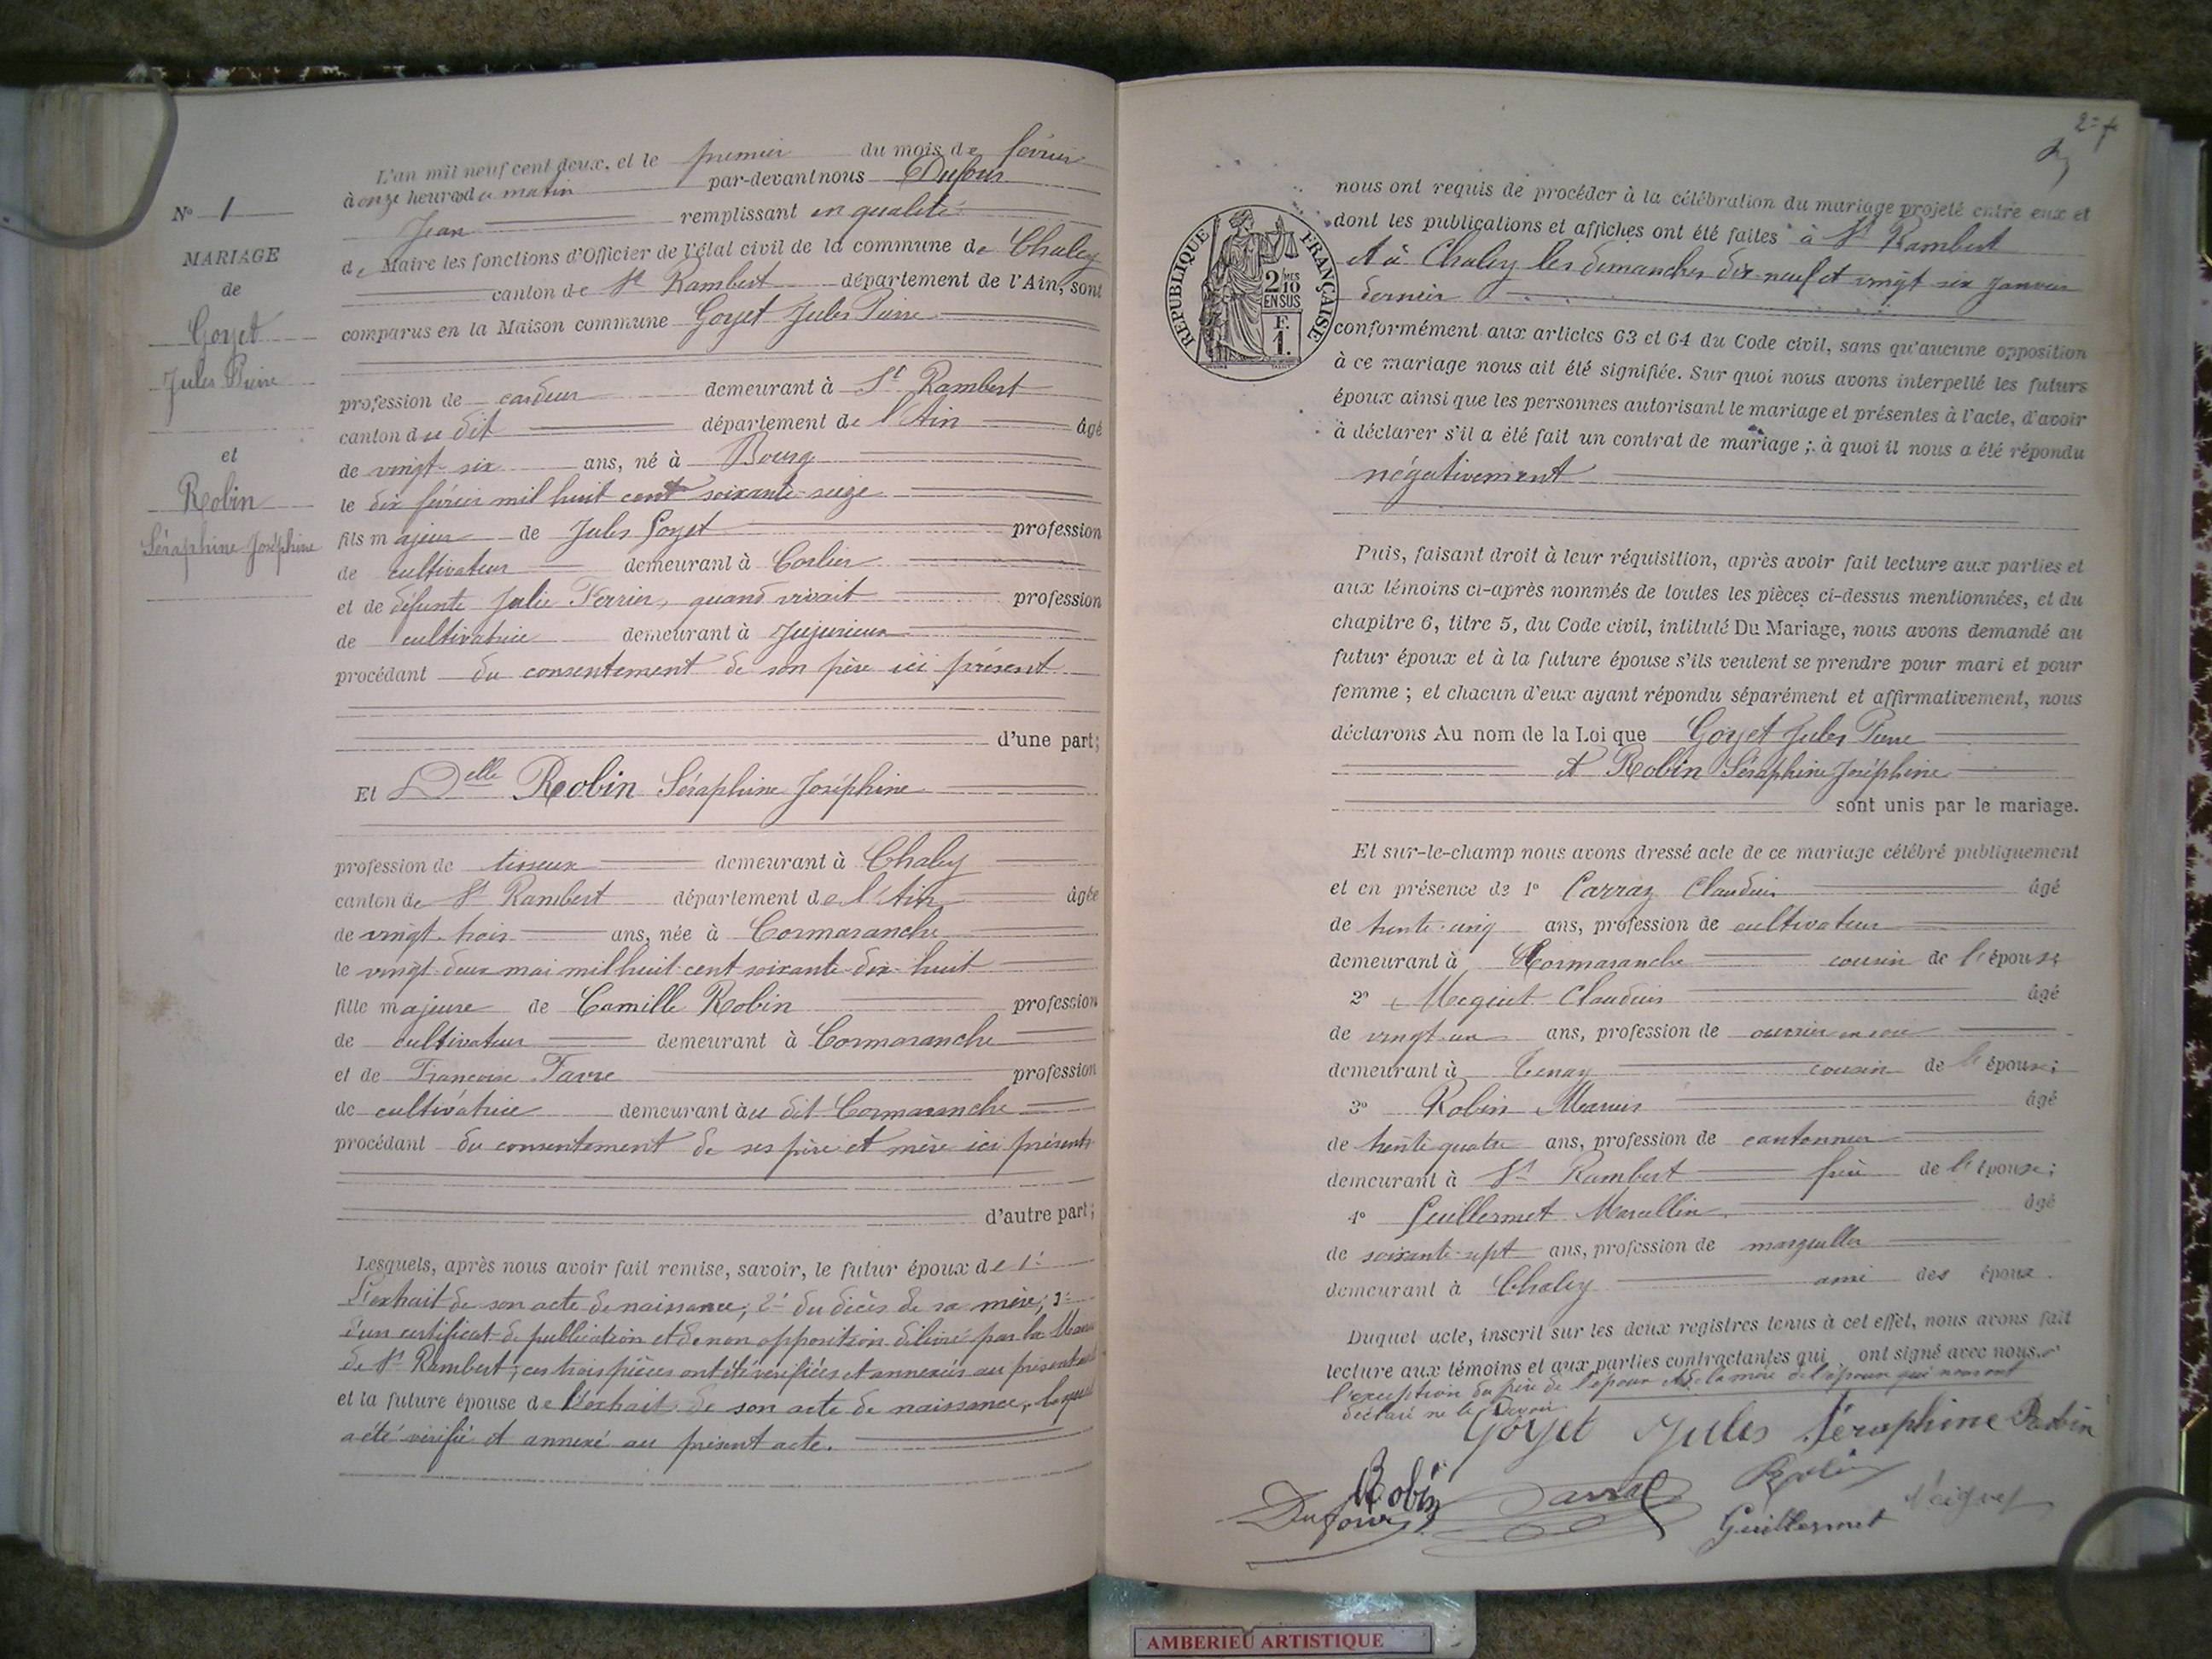 N° 1
MARIAGE
de
Goyet
Jules Pierre
et
Robin
Séraphine Joséphine
L'an mil neuf cent deux, et le premier du mois de février
à onze heures du matin par-devant nous Dufour
Jean remplissant en qualité
de Maire les fonctions d'Officier de l'état civil de la commune de Chaley
canton de St Rambert département de l'Ain, sont
comparus en la Maison commune Goyet Jules Pierre
profession de cardeur demeurant à St Rambert
canton du dit département de l'Ain âgé
de vingt six ans, né à Bourg
le dix février mil huit cent soixante seize
fils majeur de Jules Goyet profession
de cultivateur demeurant à Corlier
et de défunte Julie Perrin, quand vivait profession
de cultivatrice demeurant à Jujurieux
procédant du consentement de son père ici présent
d'une part;
Et Delle Robin Séraphine Joséphine
profession de tisseuse demeurant à Chaley
canton de St Rambert département de l'Ain âgée
de vingt trois ans, née à Cormaranche
le vingt deux mai mil huit cent soixante dix huit
fille majeure de Camille Robin profession
de cultivateur demeurant à Cormaranche
et de Françoise Favre profession
de cultivatrice demeurant au dit Cormaranche
procédant du consentement de ses père et mère ici présents
d'autre part;
Lesquels, après nous avoir fait remise, savoir, le futur époux de 1°
L'extrait de son acte de naissance; 2° du décès de sa mère; 3°
d'un certificat de publication et de non opposition délivré par la Mairie
de St Rambert; ces trois pièces ont été vérifiées et annexées au présent
et la future épouse de l'extrait de son acte de naissance, lequel
a été vérifié et annexé au présent acte.
2e f
nous ont requis de procéder à la célébration du mariage projeté entre eux et
dont les publications et affiches ont été faites à St Rambert
et à Chaley les dimanches dix neuf et vingt six janvier
dernier
RÉPUBLIQUE FRANÇAISE
2/10 MES
EN SUS
F.
1.
conformément aux articles 63 et 64 du Code civil, sans qu'aucune opposition
à ce mariage nous ait été signifiée. Sur quoi nous avons interpellé les futurs
époux ainsi que les personnes autorisant le mariage et présentes à l'acte, d'avoir
à déclarer s'il a été fait un contrat de mariage; à quoi il nous a été répondu
négativement
Puis, faisant droit à leur réquisition, après avoir fait lecture aux parties et
aux témoins ci-après nommés de toutes les pièces ci-dessus mentionnées, et du
chapitre 6, titre 5, du Code civil, intitulé Du Mariage, nous avons demandé au
futur époux et à la future épouse s'ils veulent se prendre pour mari et pour
femme; et chacun d'eux ayant répondu séparément et affirmativement, nous
déclarons Au nom de la Loi que Goyet Jules Pierre
et Robin Séraphine Joséphine
sont unis par le mariage.
Et sur-le-champ nous avons dressé acte de ce mariage célébré publiquement
et en présence de 1° Carraz Claudius âgé
de trente cinq ans, profession de cultivateur
demeurant à Cormaranche cousin de l'épouse
2° Claudius âgé
de vingt un ans, profession de ouvrier en soie
demeurant à Tenay cousin de l'épouse;
3° Robin Marius âgé
de trente quatre ans, profession de cantonnier
demeurant à St Rambert frère de l'épouse;
4° Guillermet Marcellin âgé
de soixante sept ans, profession de marguiller
demeurant à Chaley ami des époux.
Duquel acte, inscrit sur les deux registres tenus à cet effet, nous avons fait
lecture aux témoins et aux parties contractantes qui ont signé avec nous à
l'exception du père de l'époux et de la mère de l'épouse qui nous ont
déclaré ne le savoir
Goyet Jules Séraphine Robin
Robin Carraz Robin
Dufour Guillermet
AMBERIEU ARTISTIQUE